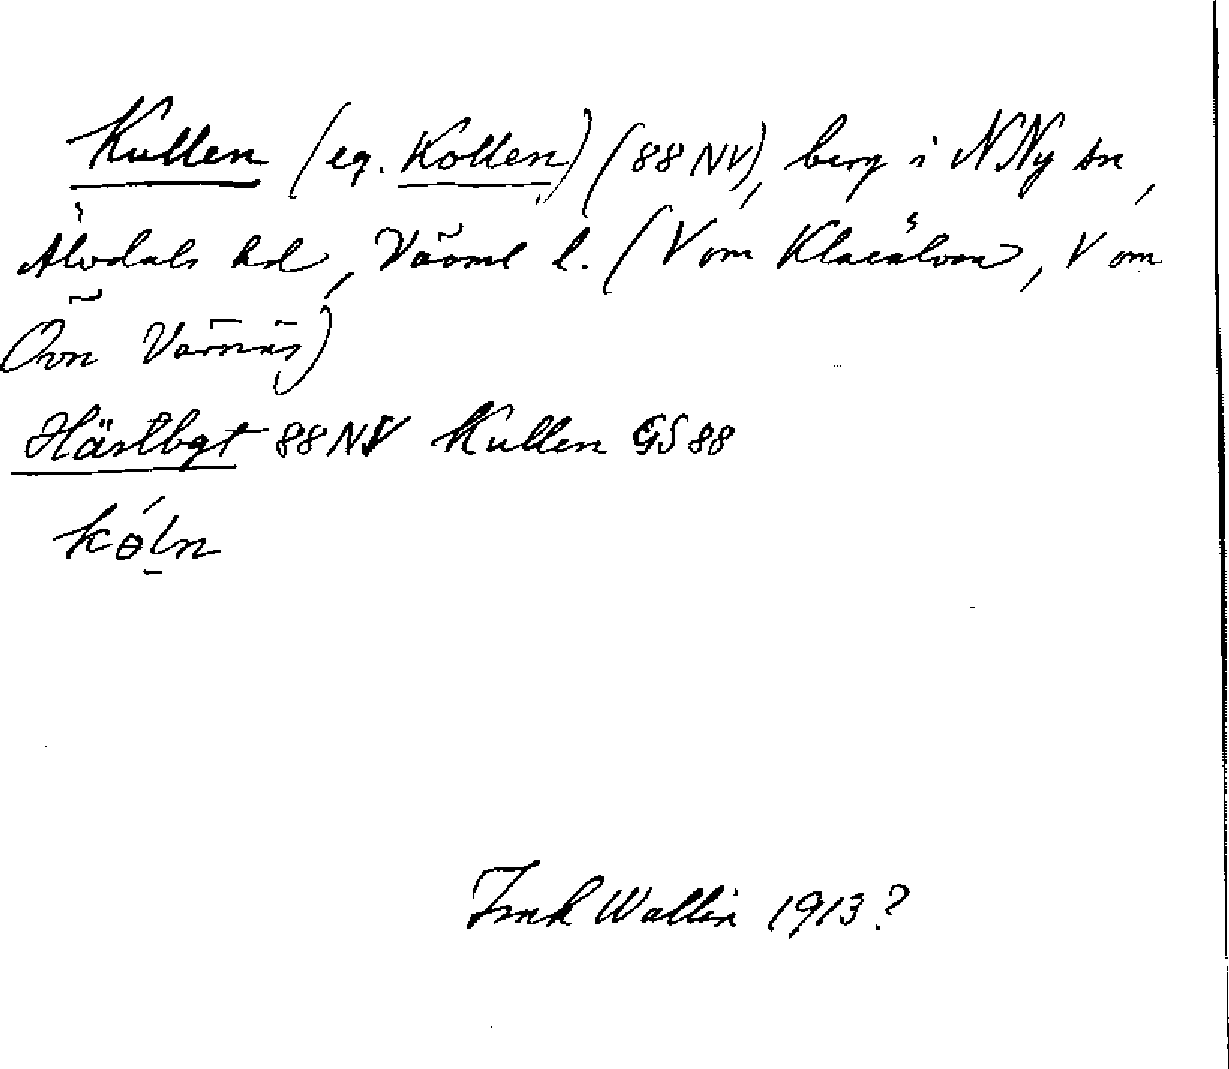 Kullen (eg. Kollen) (88 NV), berg i N Ny sn,
Älvdals hd, Värml l. (V om Klarälven, V om
Övn Värnäs)
Härlbgt 88 NV Kullen GS 88
kóln
Wallin 1913?